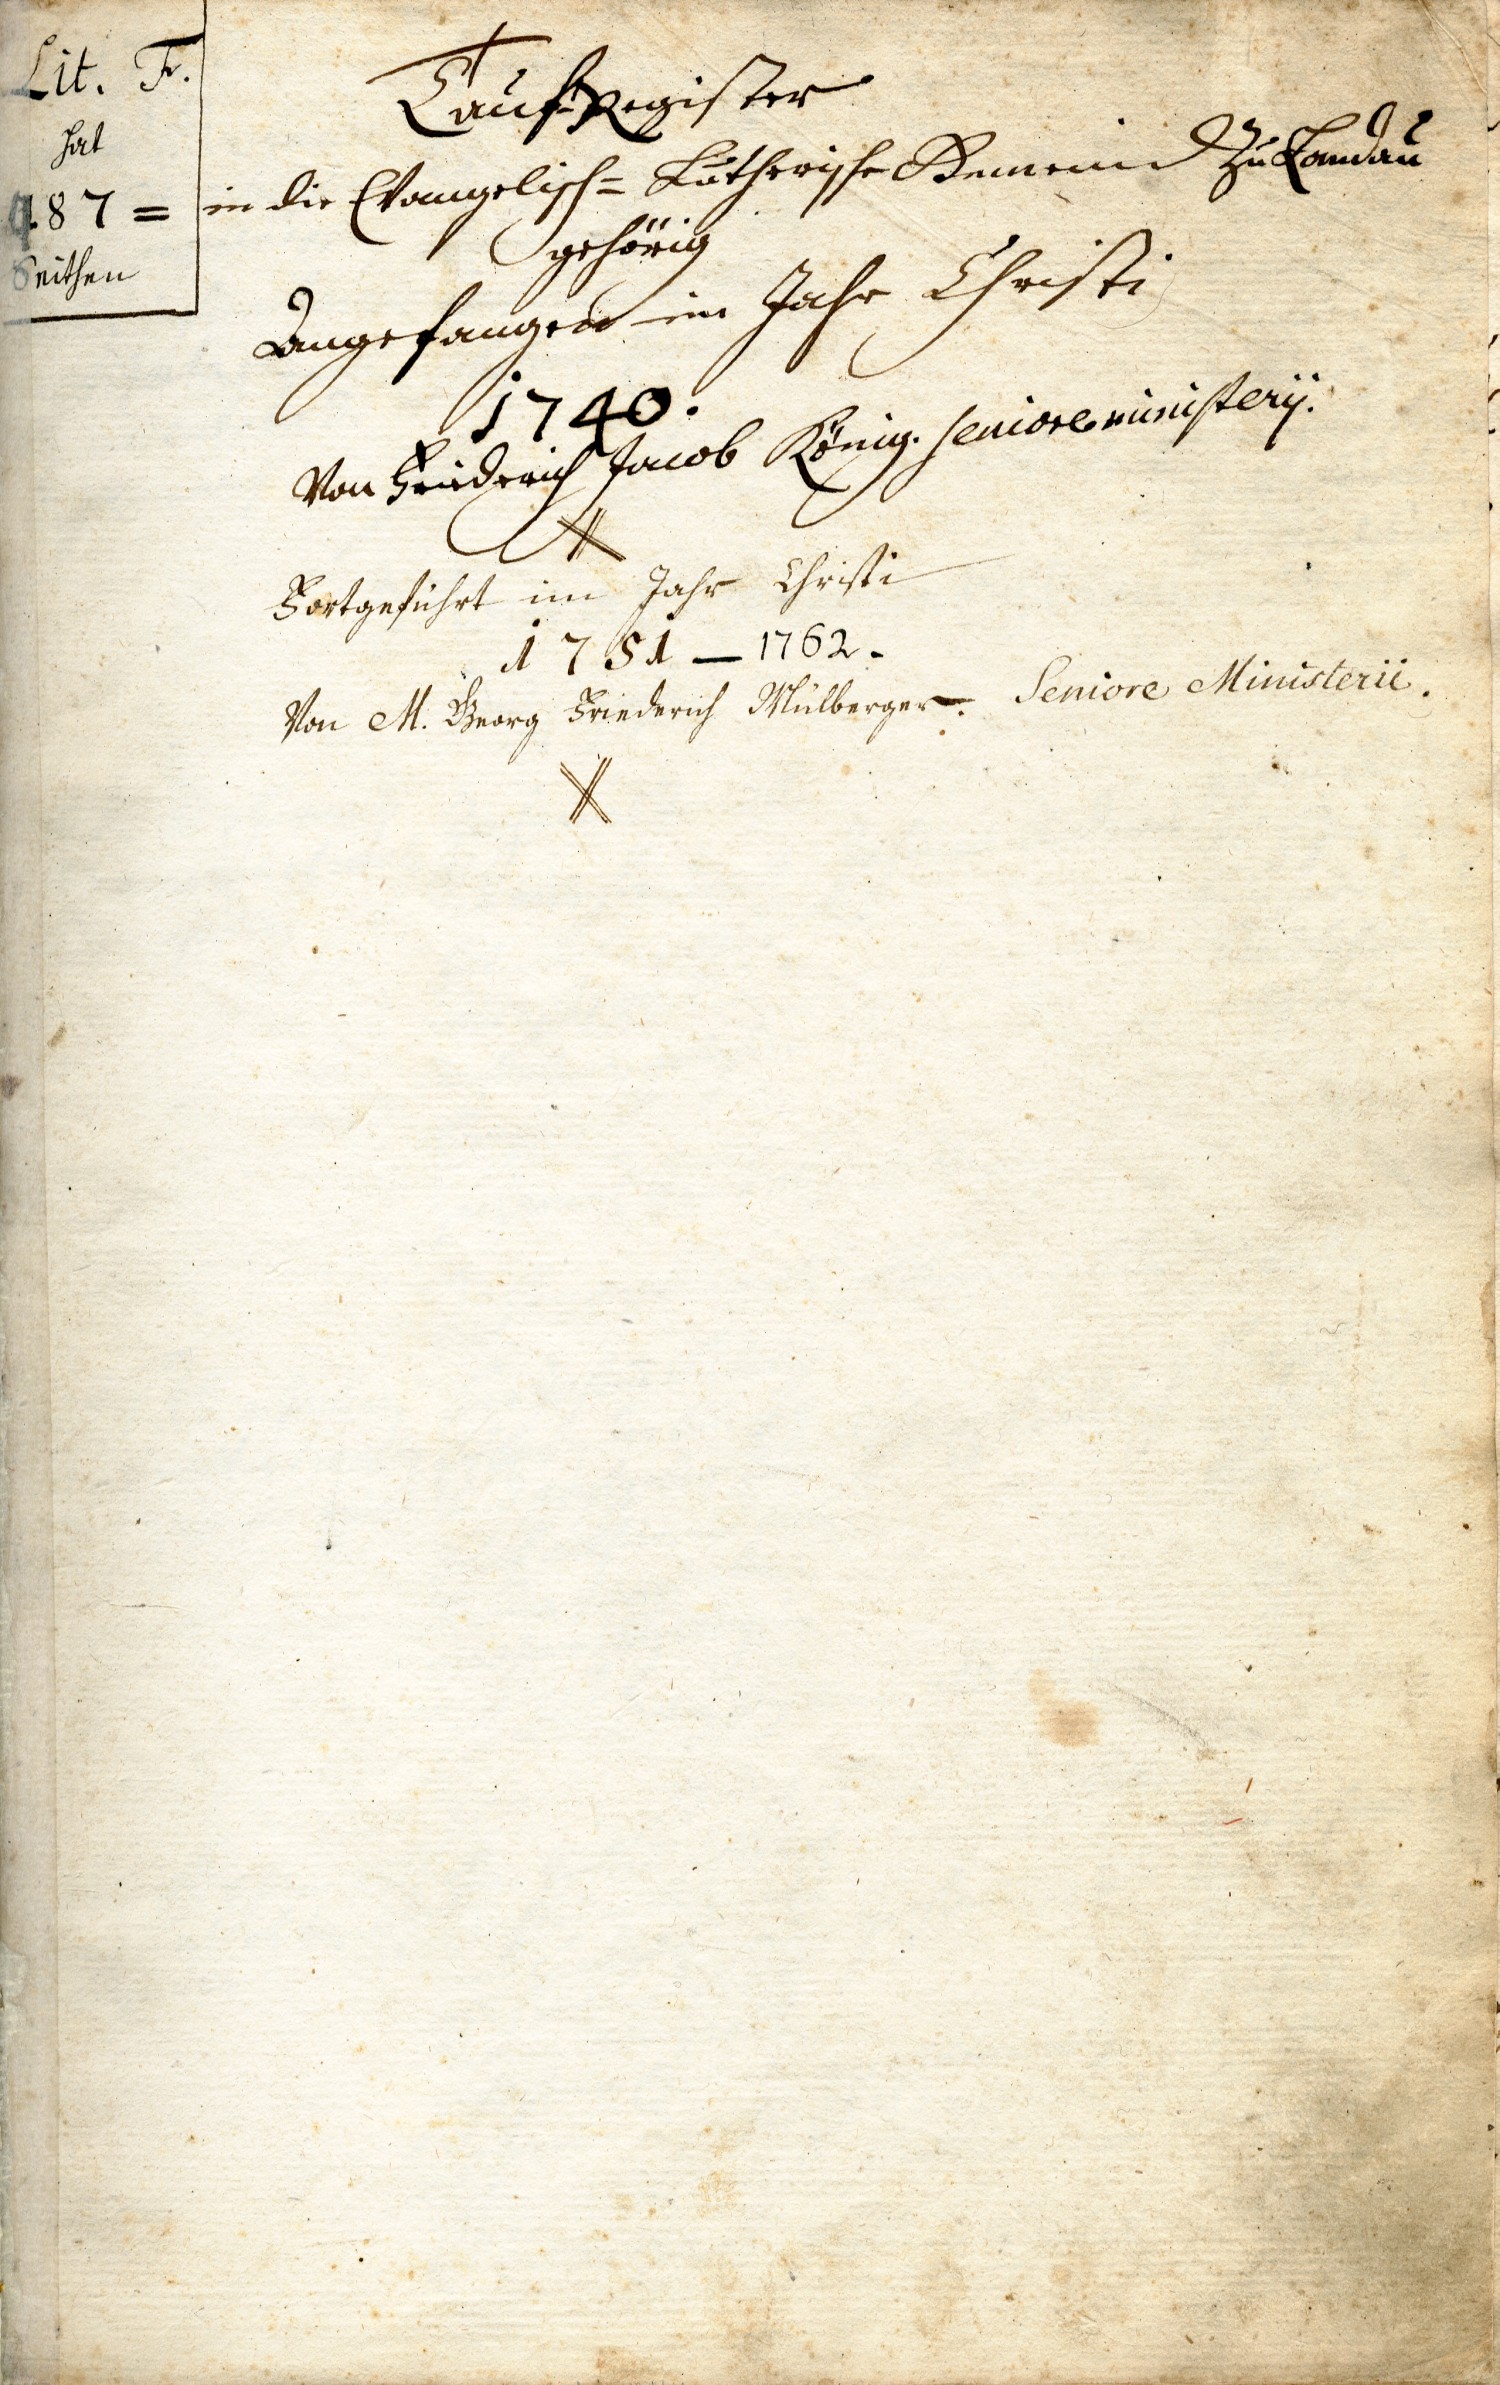 Lit. F.
hat
487 =
Seithen
Tauf-Register
in die Evangelisch= Lutherische Gemeind zu Landau
gehörig
Angefangen im Jahr Christi
1740.
Von Friederich Jacob König. Seniore ministerij.
Fortgeführt im Jahr Christi
1751 — 1762.
Von M. Georg Friederich Mülberger. Seniore Ministerii.